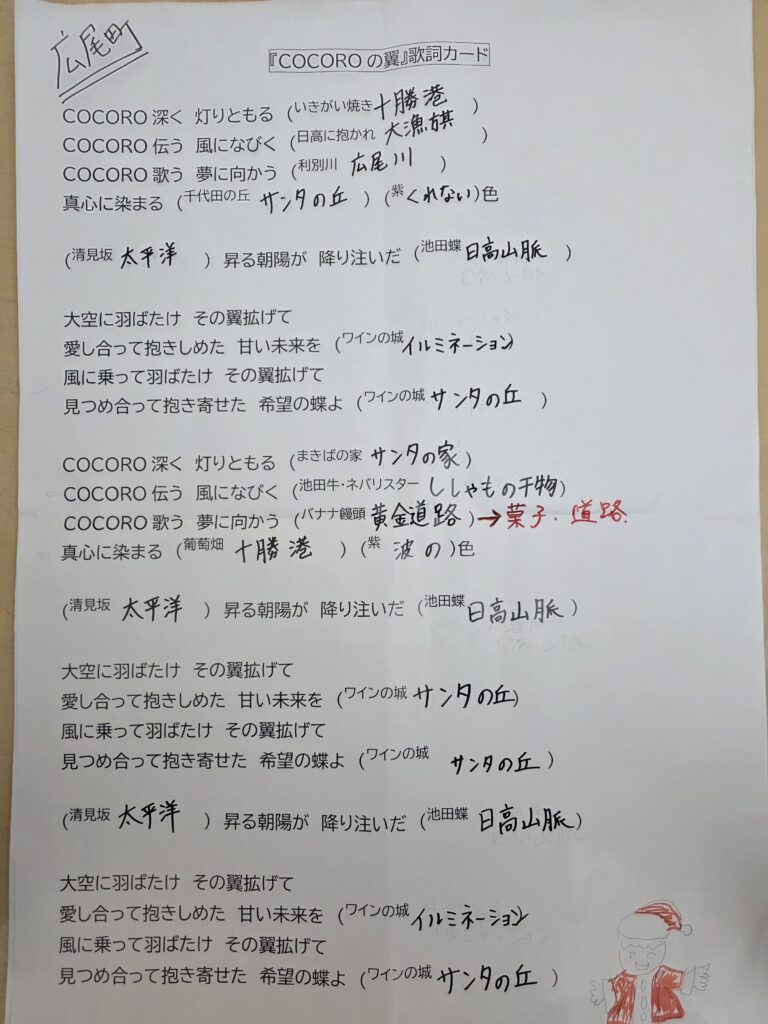 広尾町
『COCOROの翼』歌詞カード
COCORO 深く 灯りともる (いきがい焼き 十勝港 )
COCORO 伝う 風になびく (日高に抱かれ 大漁旗 )
COCORO 歌う 夢に向かう (利別川 広尾川 )
真心に染まる (千代田の丘 サンタの丘 ) (紫 くれない)色
(清見坂 太平洋 ) 昇る朝陽が 降り注いだ (池田蝶 日高山脈 )
大空に羽ばたけ その翼拡げて
愛し合って抱きしめた 甘い未来を (ワインの城 イルミネーション)
風に乗って羽ばたけ その翼拡げて
見つめ合って抱き寄せた 希望の蝶よ (ワインの城 サンタの丘 )
COCORO 深く 灯りともる (まきばの家 サンタの家 )
COCORO 伝う 風になびく (池田牛・ネバリスター ししゃもの干物)
COCORO 歌う 夢に向かう (バナナ饅頭 黄金道路 ) →菓子、道路
真心に染まる (葡萄畑 十勝港 ) (紫 波の )色
(清見坂 太平洋 ) 昇る朝陽が 降り注いだ (池田蝶 日高山脈 )
大空に羽ばたけ その翼拡げて
愛し合って抱きしめた 甘い未来を (ワインの城 サンタの丘)
風に乗って羽ばたけ その翼拡げて
見つめ合って抱き寄せた 希望の蝶よ (ワインの城 サンタの丘 )
(清見坂 太平洋 ) 昇る朝陽が 降り注いだ (池田蝶 日高山脈)
大空に羽ばたけ その翼拡げて
愛し合って抱きしめた 甘い未来を (ワインの城 イルミネーション
風に乗って羽ばたけ その翼拡げて
見つめ合って抱き寄せた 希望の蝶よ (ワインの城 サンタの丘 )